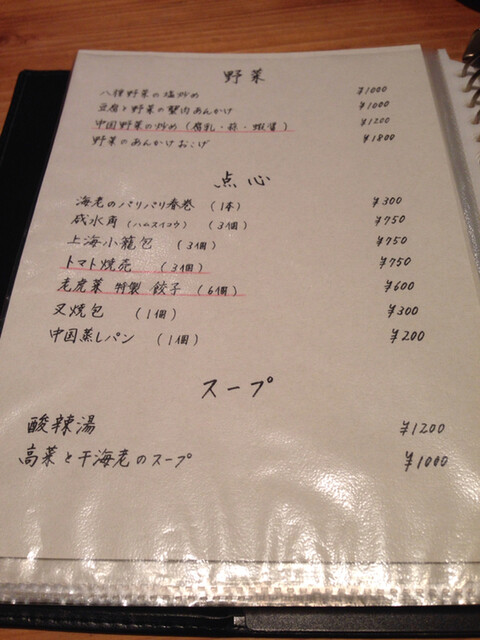 野菜
八種野菜の塩炒め ¥1000
豆腐と野菜の蟹肉あんかけ ¥1000
中国野菜の炒め(腐乳・蒜・蝦醤) ¥1200
野菜のあんかけおこげ ¥1800
点心
海老のパリパリ春巻 (1本) ¥300
咸水角(ハムスイコウ) (3個) ¥750
上海小籠包 (3個) ¥750
トマト焼売 (3個) ¥750
老虎菜 特製 餃子 (6個) ¥600
叉焼包 (1個) ¥300
中国蒸しパン (1個) ¥200
スープ
酸辣湯 ¥1200
高菜と干海老のスープ ¥1000